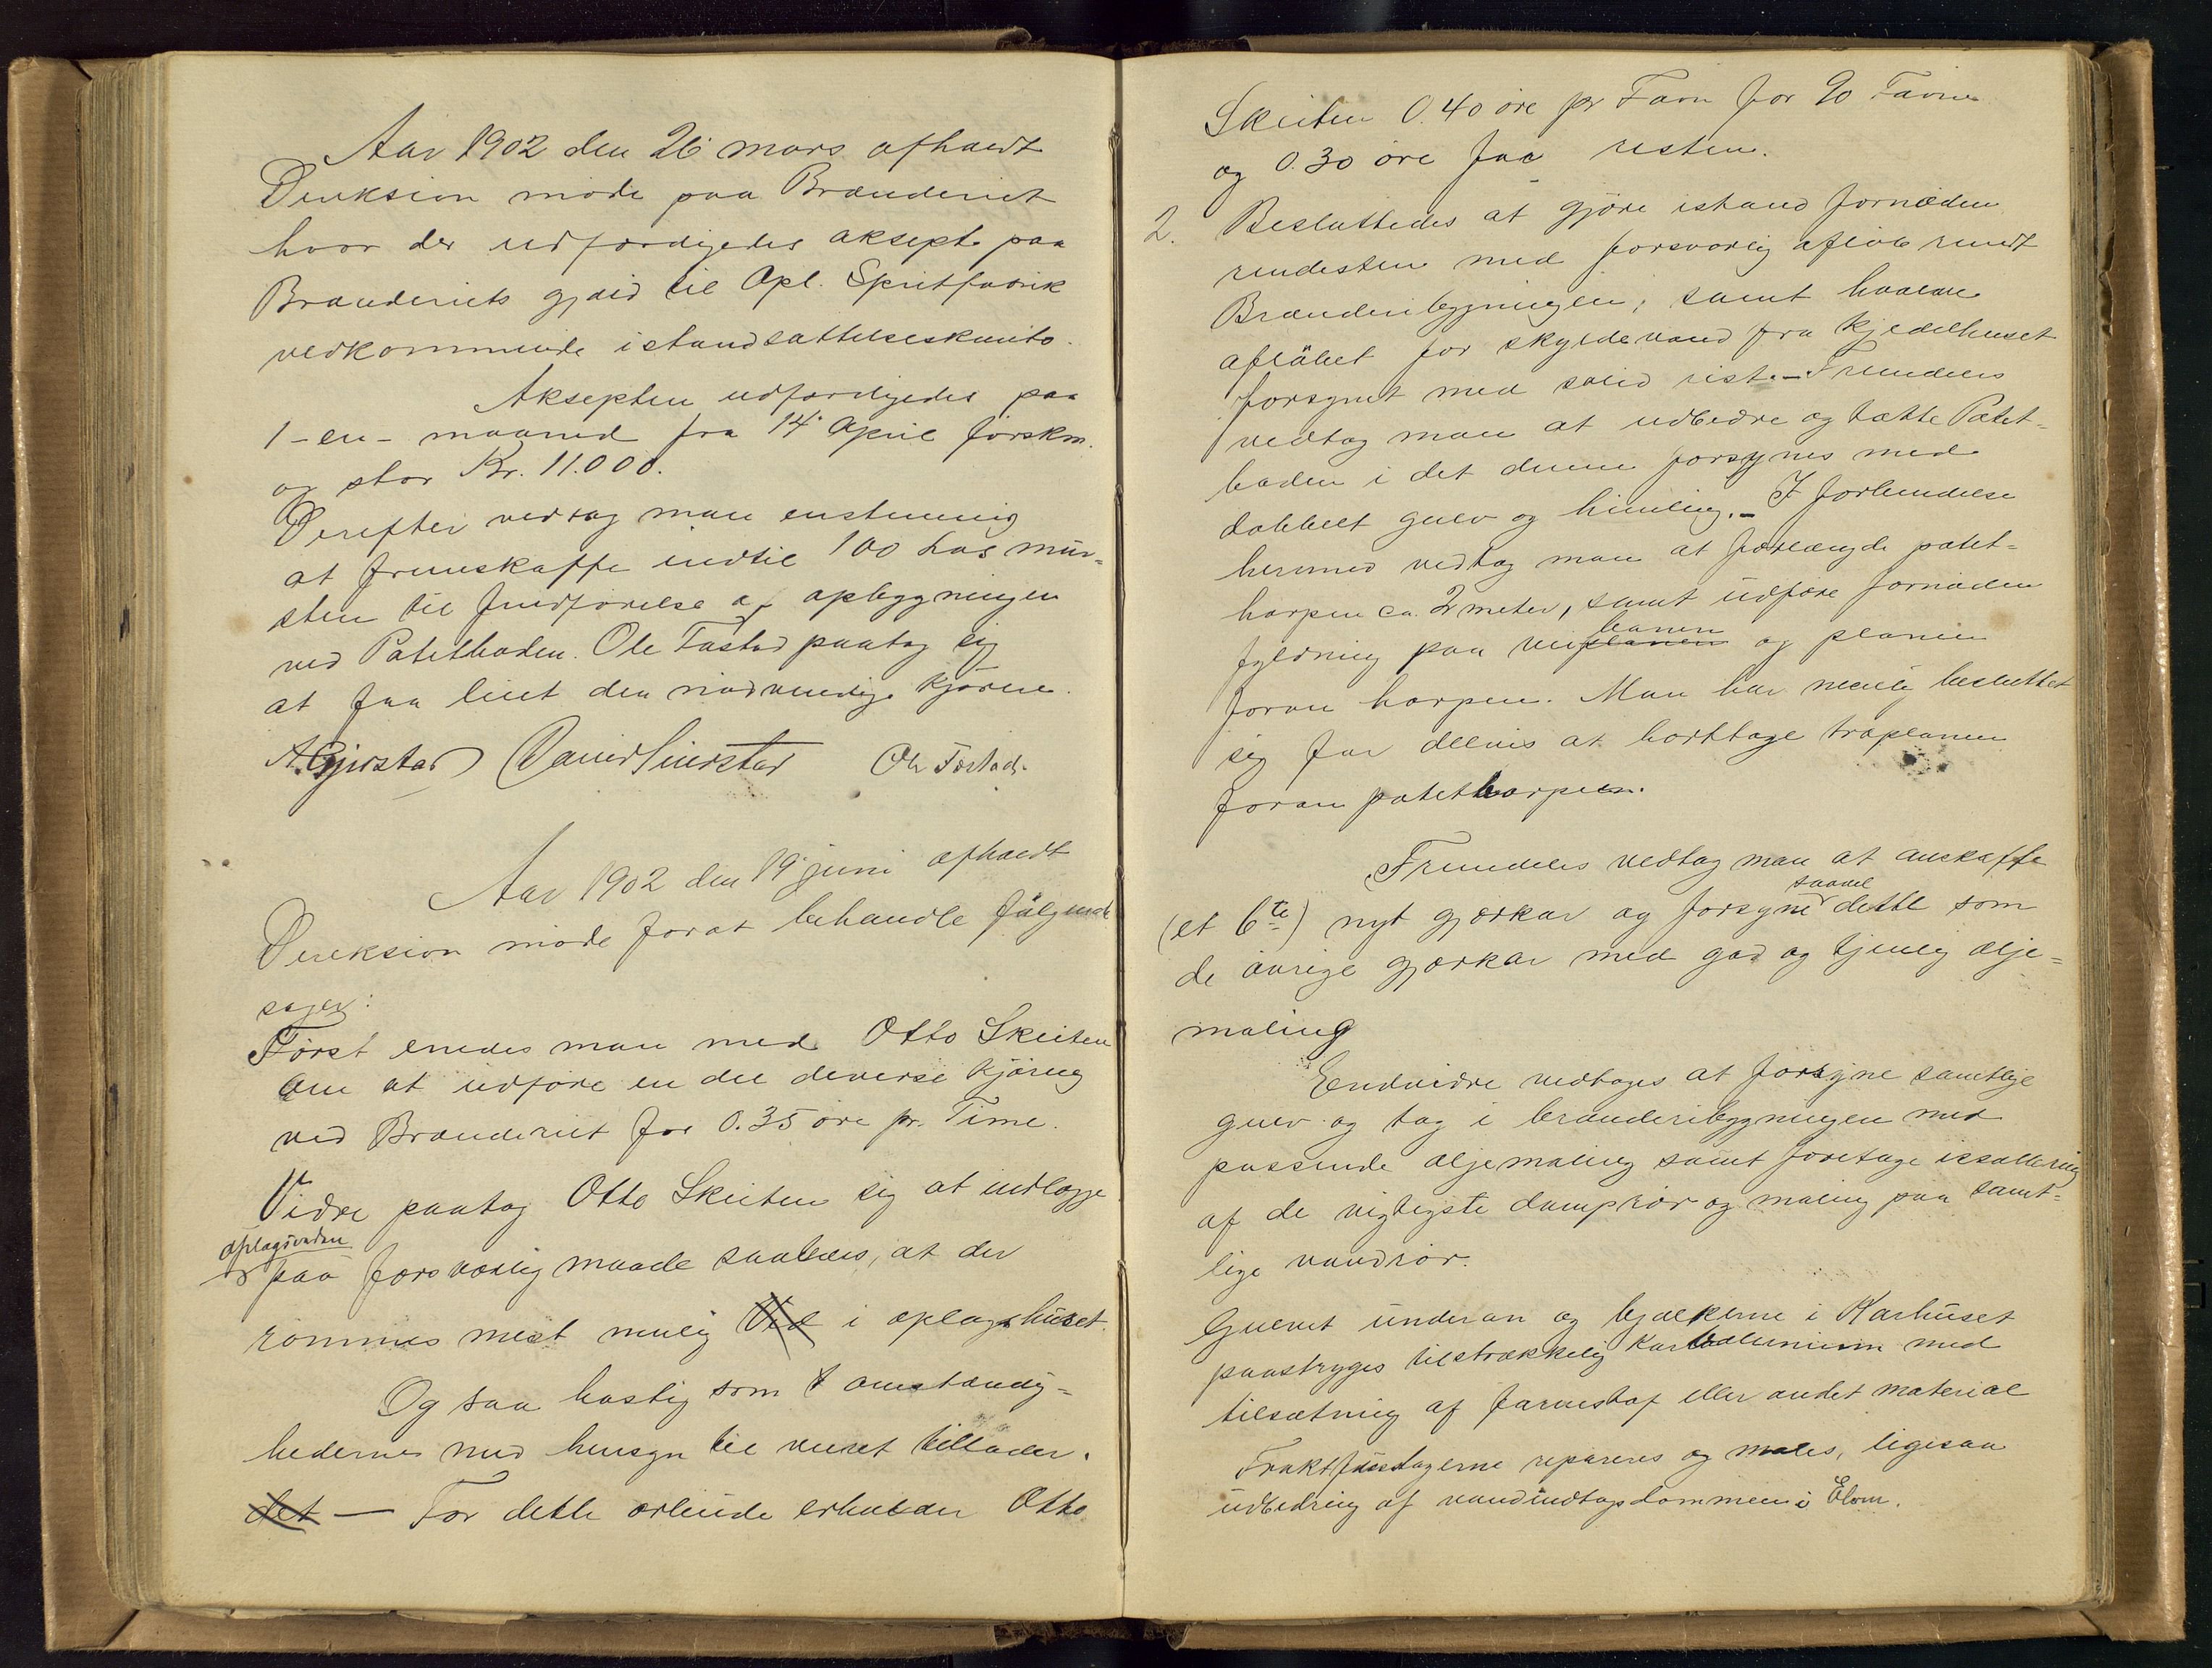 Aar 1902 den 26 mars afholdt
Direksion möde paa Brænderiet
hvor der udfærdigedes aksept paa
Brænderiets gjæld til Opl. Spritfabrik
vedkommende istandsættelseskonto.
Aksepten udfærdigedes paa
1 - en - maaned fra 14 April förskm.
og stor Kr. 11.000.
Derefter vedtog man enstemmig
at fremskaffe indtil 100 Las mur-
sten til fremförelse af opbygningen
ved Potetboden. Ole Tøstad paatog sig
at faa leiet den nödvendige kjören.
A. Gjestad David Seierstad Ole Tøstad.
Aar 1902 den 19 juni afholdt
Direksion möde forat behandle fölgende
sager:
Först enedes man med Otto Skeiten
om at udföre en del deverse kjöring
ved Brænderiet for 0.35 öre pr. Time.
Vidre paatog Otto Skeiten sig at indlægge
oplagsveden
paa forsvarlig maade saaledes, at der
rommes mest mulig Ved i oplagshuset.
Og saa hastig som omstændig-
hederne med hensyn til veiret tillader.
det — For dette arbeide erholder Otto
Skeiten 0.40 öre pr Favn for 90 Favne
og 0.30 öre for resten.
2. Besluttedes at gjöre istand fornöden
rendesten med forsvarlig aflöb rundt
Brænderibygningen, samt holde
aflöbet for skyldevand fra Kjedelhuset
forsynt med solid rist. - Fremdeles
vedtog man at udbedre og tætte Potet-
boden i det denne forsynes med
dobbelt gulv og himling. - I forbindelse
hermed vedtog man at forlængde potet-
harpen ca. 2 meter, samt udföre fornöden
banen
fyldning paa veiplanen og planen
foran harpen. Man har nemlig besluttet
sig for delvis at borttage træplanen
foran potetharpen.
Fremdeles vedtog man at anskaffe
saavel
(et 6te) nyt gjærkar og forsyne dette som
de övrige gjærkar med god og tjenlig olje-
maling
Endvidre vedtoges at forsyne samtlige
gulv og tag i brænderibygningen med
passende oljemaling samt foretage issollering
af de vigtigste damprör og maling paa samt-
lige vandrör.
Gulvet underan og bjælkerne i Karhuset
paastryges tilstrækkelig Karbolenium med
tilsætning af farvestof eller andet material
Fraktfustagerne repareres og males, ligesaa
udbedring af vandindtagsdammen i Elven.